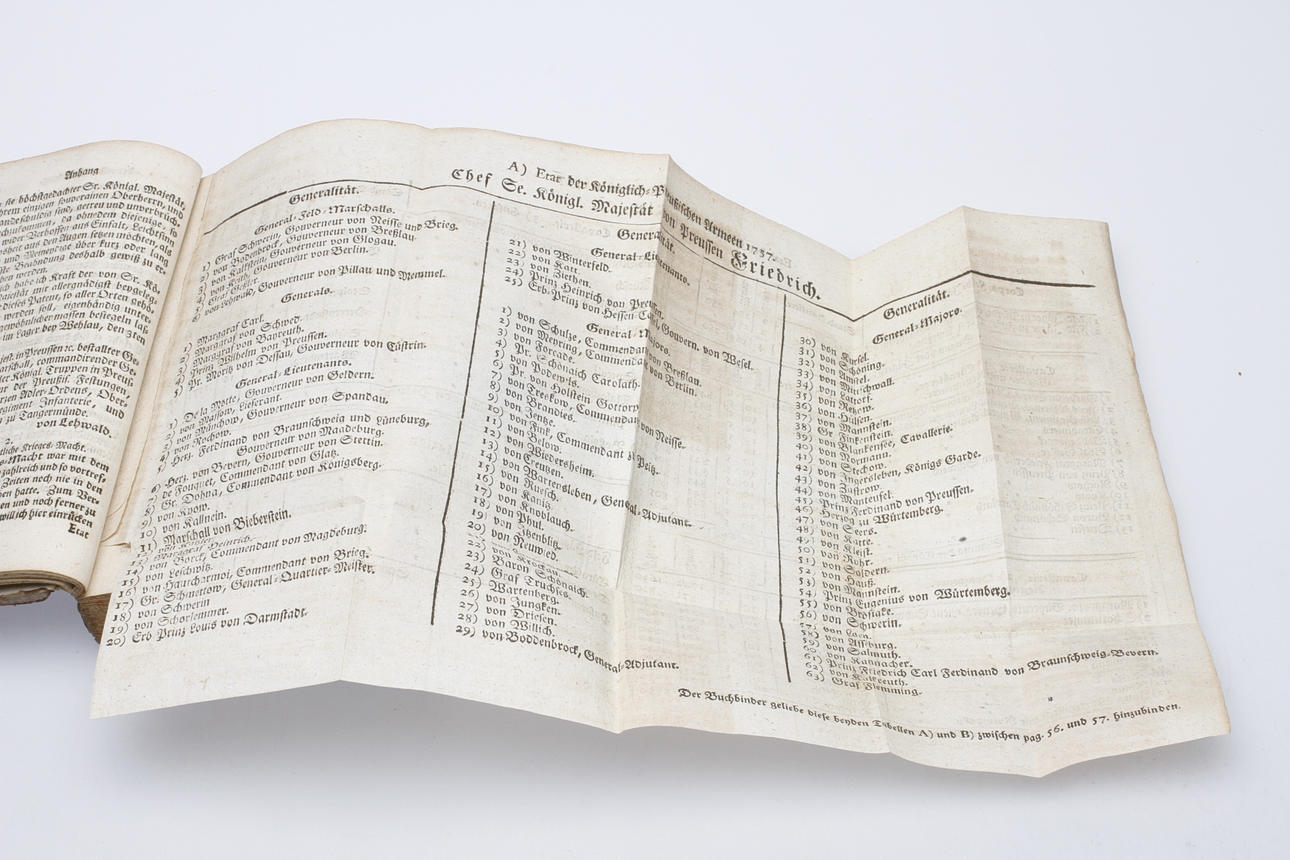 Anhang
sie höchstgedachter Sr. Königl. Majestät,
ihrem einigen souverainen Oberherrn, und
schuldig sind, getreu und unverbrüch-
da ohnedem diejenige, so
wider Verhoffen aus Einfalt, Leichtsinn
aus den Augen setzen möchten, als
und Meineydige über kurz oder lang
Ahndung deshalb gewiß zu er-
werden.
ich habe ich Kraft der von Sr. Kö-
Majestät mir allergnädigst beygeleg-
dieses Patent, so aller Orten
werden soll, eigenhändig unter-
gewöhnlicher massen besiegeln
im Lager bey Wehlau, den
in Preussen rc. bestallter Ge-
commandirender Ge-
Königl. Truppen in Preus-
der Preußis. Festungen,
Adler-Ordens, Ober-
Regiment Infanterie, und
zu Tangermünde.
von Lehwald.
2.
Krieges-Macht
Macht war mit dem
zahlreich und so vortref-
Zeiten noch nie in den
hatte. Zum Ver-
und noch ferner zu
will ich hier einrücken
Etat
A) Etat der Königlich-Preußischen Armeen 1757.
Chef Se. Königl. Majestät von Preussen Friedrich.
Generalität.
General-Feld-Marschalls.
1) Graf Schwerin, Gouverneur von Neisse und Brieg.
2) von Bodenbrock, Gouverneur von Breßlau.
3) von Kalkstein, Gouverneur von Glogau.
4) von Gouverneur von Berlin.
5) Graf
6) von Lehwald, Gouverneur von Pillau und Memmel.
Generals.
1) Marggraf Carl.
2) Marggraf von Schwed.
3) Marggraf von Bayreuth.
4) Prinz Wilhelm von Preussen.
5) Pr. Moritz von Dessau, Gouverneur von Cüstrin.
General-Lieutenants.
1) De la Motte, Gouverneur von Geldern.
2) von Massow, Lieferant.
3) von Münchow, Gouverneur von Spandau.
4) von Rochow.
5) Herz. Ferdinand von Braunschweig und Lüneburg,
Gouverneur von Magdeburg.
6) Herz. von Bevern, Gouverneur von Stettin.
7) de Fouquet, Commendant von Glatz.
8) Gr. Dohna, Commendant von Königsberg.
9) von Kyow.
10) von Kallnein.
11) Marschall von Bieberstein.
Heinrich.
von Borck, Commendant von Magdeburg.
15) von Leichwitz.
16) von Hauchармоi, Commendant von Brieg.
17) Gr. Schmettow, General-Quartier-Meister.
18) von Schwerin
19) von Schorlemmer.
20) Erb Prinz Louis von Darmstadt.
Generalität.
General-Lieutenants.
21) von Winterfeld.
22) von Katt.
23) von Ziethen.
24) Prinz Heinrich von Preussen.
25) Erb-Prinz von Hessen-Cassel, Gouvern. von Wesel.
General-Majors.
1) von Schulze, Commendant von Breßlau.
2) von Meyring, Commendant von Berlin.
3) von Forcade.
4) Pr. Schönaich Carolath.
5) von Podewis.
6) Pr. von Holstein Gottorp.
7) von Treskow, Commendant von Neisse.
8) von Brandies.
9) von Jentze.
10) von Fink, Commendant zu Peitz.
11) von Below.
12) von Wiedersheim.
13) von Creutzen.
14) von Wartensleben, General-Adjutant.
15) von Ruesch.
16) von Kanitz.
17) von Knoblauch.
18) von Phul.
19) von Itzenblitz.
20) von Neuwied.
22) von
23) Baron Schönaich.
24) Graf Truchses.
25) Wartenberg.
26) von Jungken.
27) von Driesen.
28) von Willich.
29) von Boddenbrock, General-Adjutant.
Generalität.
General-Majors.
30) von Kursel.
31) von Schöning.
32) von Amstel.
33) von Mütschwall.
34) von Lattorf.
35) von Rekow.
36) von Hülsen.
37) von Mannstein.
38) Gr. Finkenstein.
39) von Blankensee, Cavallerie.
40) von Normann.
41) von Stechow.
42) von Ingersleben, Königs Garde.
43) von Zastrow.
44) von Manteufel.
45) Prinz Ferdinand von Preussen.
46) Herzog zu Würtemberg.
47) von Seers.
48) von Katte.
49) von Kleist.
50) von Rohr.
51) von Saldern.
52) von Hauß.
53) von Mannstein.
54) Prinz Eugenius von Würtemberg.
55) von Broßake.
56) von Schwerin.
57) von
58) von Assburg.
59) von Salmuth.
60) von Kannacher.
61) Prinz Friedrich Carl Ferdinand von Braunschweig-Bevern.
62) von Kalkreuth.
63) Graf Flemming.
Der Buchbinder geliebe diese beyden Tabellen A) und B) zwischen pag. 56. und 57. hinzubinden.